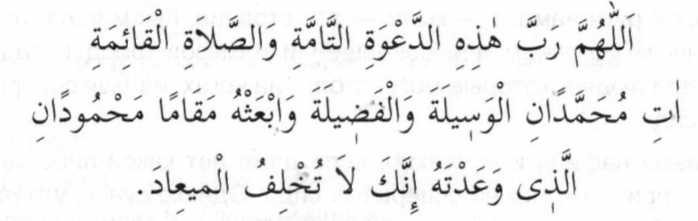 اَللّٰهُمَّ رَبَّ هٰذِهِ الدَّعْوَةِ التَّامَّةِ وَالصَّلَاةِ الْقَائِمَةِ
اٰتِ مُحَمَّدَانِ الْوَسِيلَةَ وَالْفَضِيلَةَ وَابْعَثْهُ مَقَامًا مَحْمُودًانِ
الَّذِى وَعَدْتَهُ إِنَّكَ لَا تُخْلِفُ الْمِيعَادَ.